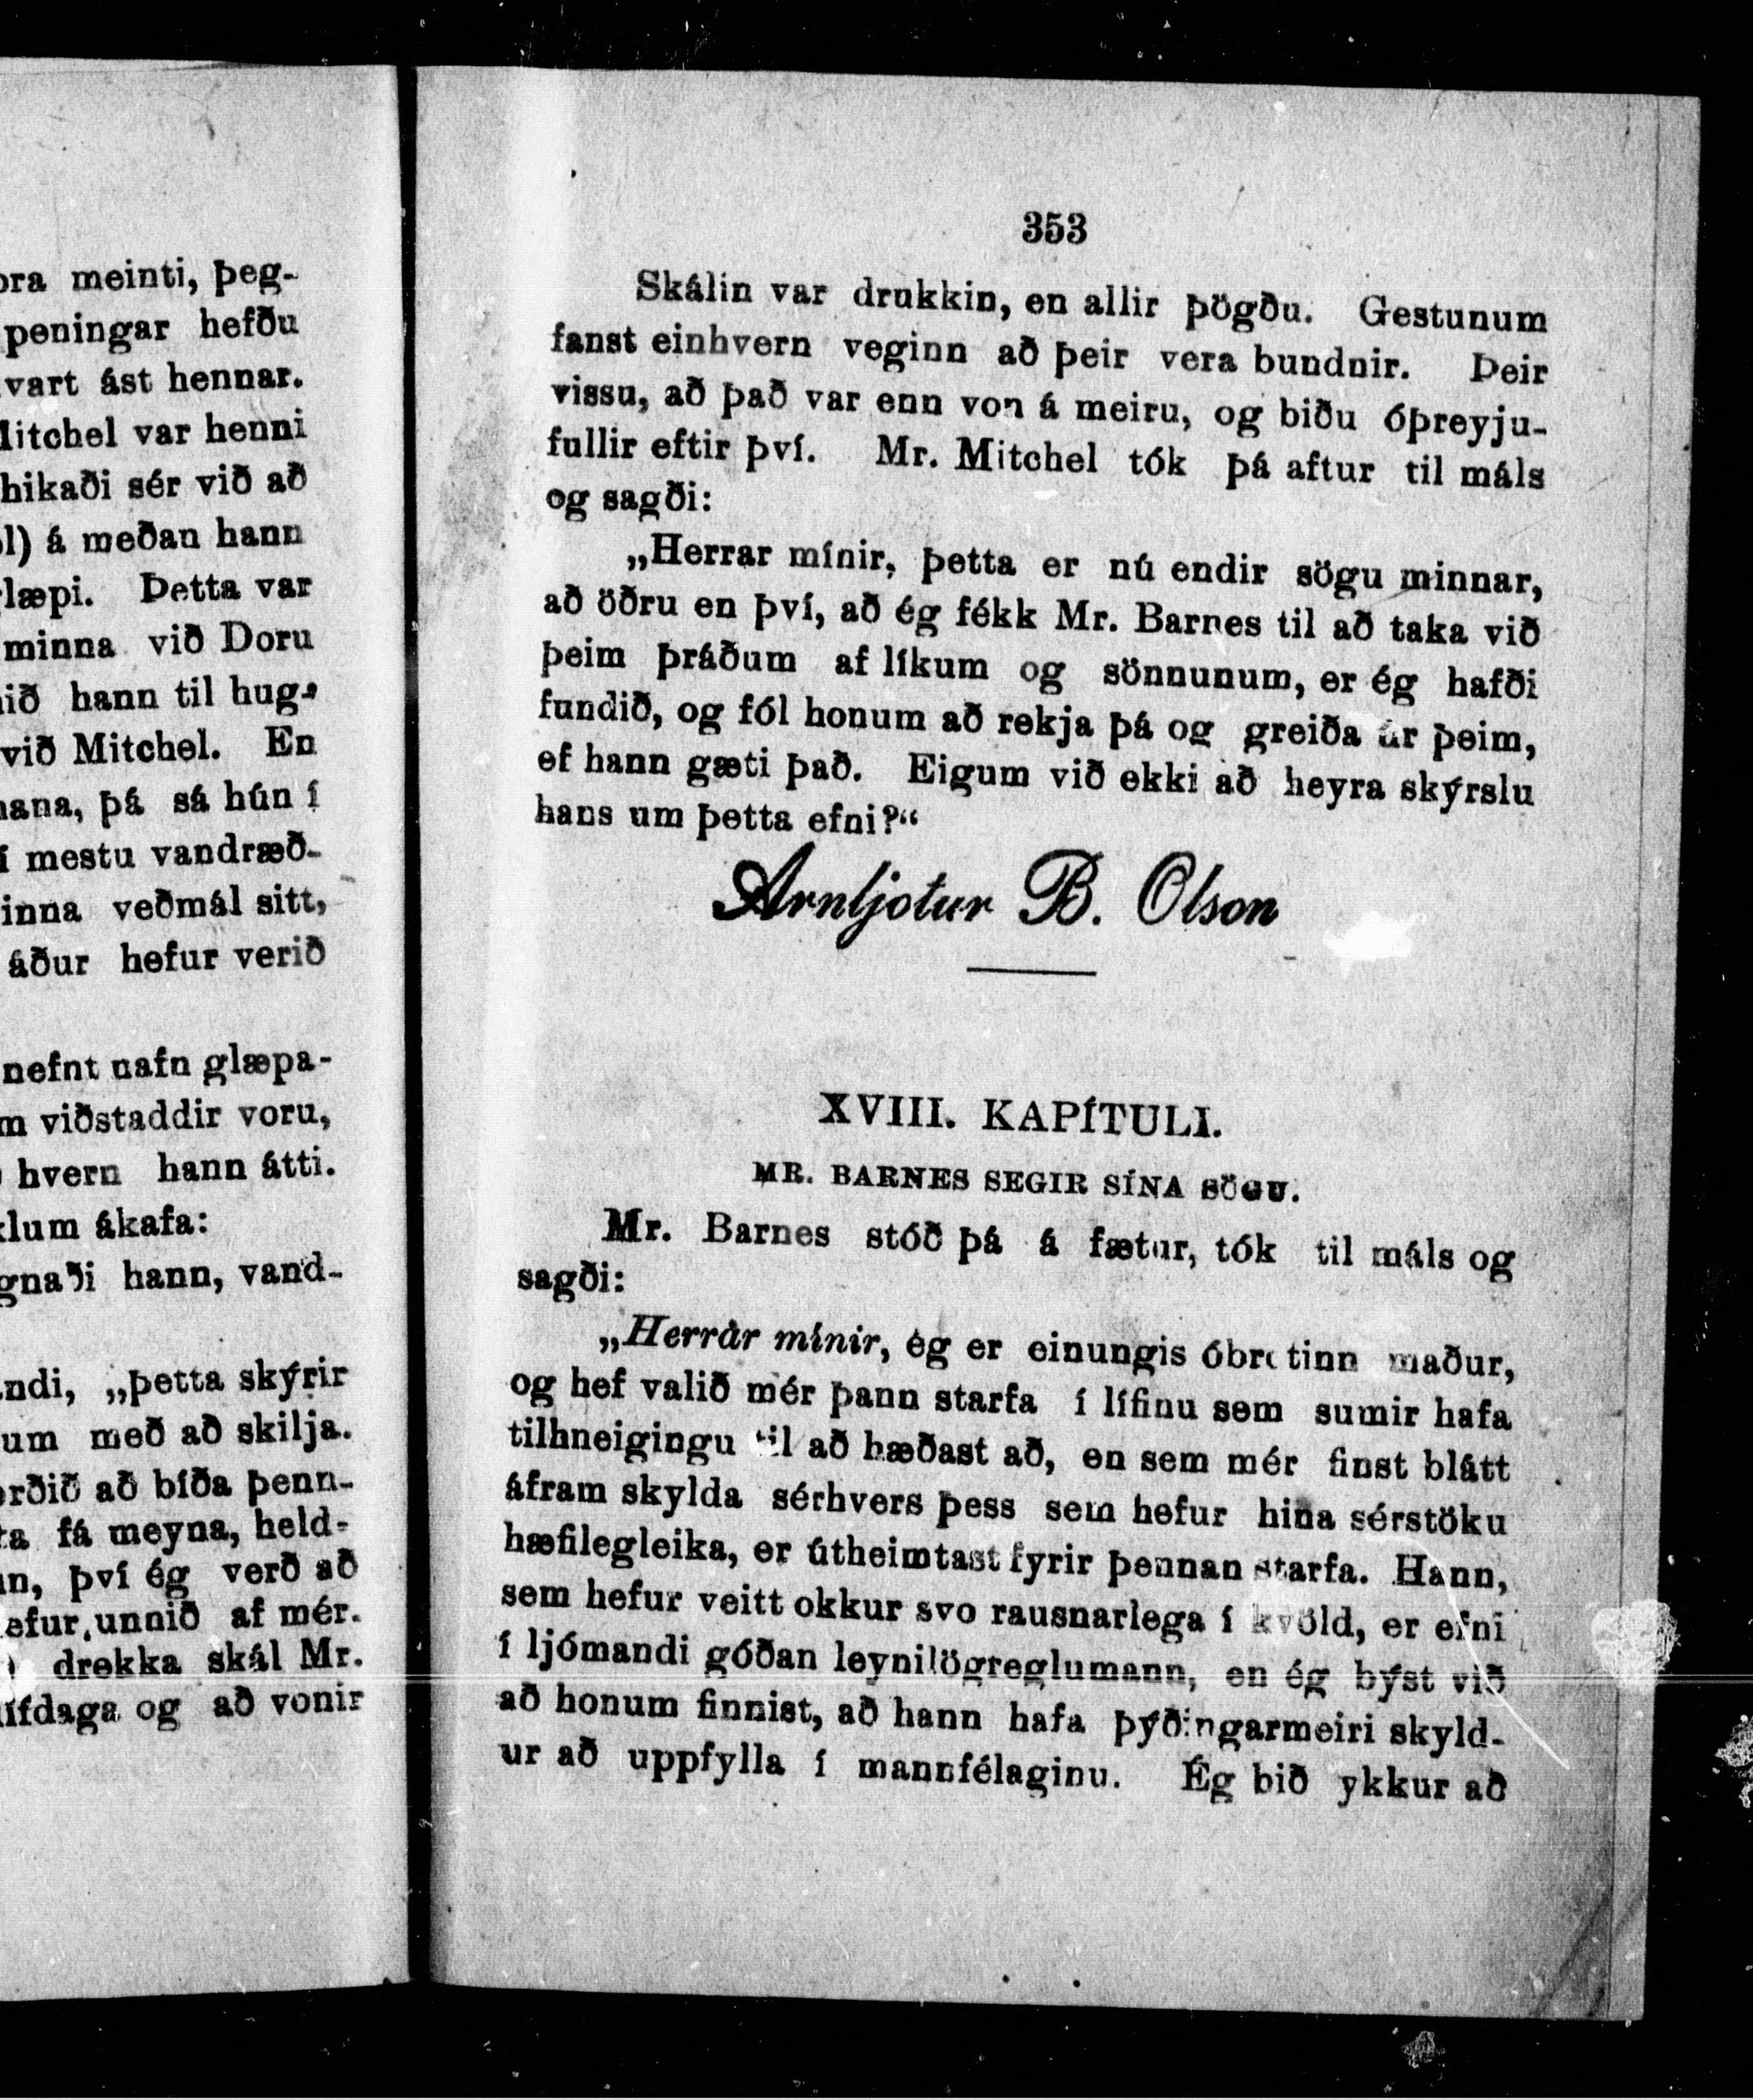 ora meinti, þeg-
peningar hefðu
vart ást hennar.
Mitchel var henni
hikaði sér við að
á meðan hann
glæpi. Þetta var
minna við Doru
hann til hugs
við Mitchel. En
hana, þá sá hún í
í mestu vandræð-
vinna veðmál sitt,
áður hefur verið
nefnt nafn glæpa-
viðstaddir voru,
hvern hann átti.
ákafa:
gnaði hann, vand-
andi, „þetta skýrir
um með að skilja.
orðið að bíða þenn-
fá meyna, held-
því ég verð að
hefur unnið af mér.
drekka skál Mr.
lífdaga og að vonir
353
Skálin var drukkin, en allir þögðu. Gestunum
fanst einhvern veginn að þeir vera bundnir. Þeir
vissu, að það var enn von á meiru, og biðu óþreyju-
fullir eftir því. Mr. Mitchel tók þá aftur til máls
og sagði:
„Herrar mínir, þetta er nú endir sögu minnar,
að öðru en því, að ég fékk Mr. Barnes til að taka við
þeim þráðum af líkum og sönnunum, er ég hafði
fundið, og fól honum að rekja þá og greiða úr þeim,
ef hann gæti það. Eigum við ekki að heyra skýrslu
hans um þetta efni?“
Arnljotur B. Olson
XVIII. KAPÍTULI.
MR. BARNES SEGIR SÍNA SÖGU.
Mr. Barnes stóð þá á fætur, tók til máls og
sagði:
„Herrar mínir, ég er einungis óbrotinn maður,
og hef valið mér þann starfa í lífinu sem sumir hafa
tilhneigingu til að hæðast að, en sem mér finst blátt
áfram skylda sérhvers þess sem hefur hina sérstöku
hæfilegleika, er útheimtast fyrir þennan starfa. Hann,
sem hefur veitt okkur svo rausnarlega í kvöld, er efni
í ljómandi góðan leynilögreglumann, en ég býst við
að honum finnist, að hann hafa þýðingarmeiri skyld-
ur að uppfylla í mannfélaginu. Ég bið ykkur að